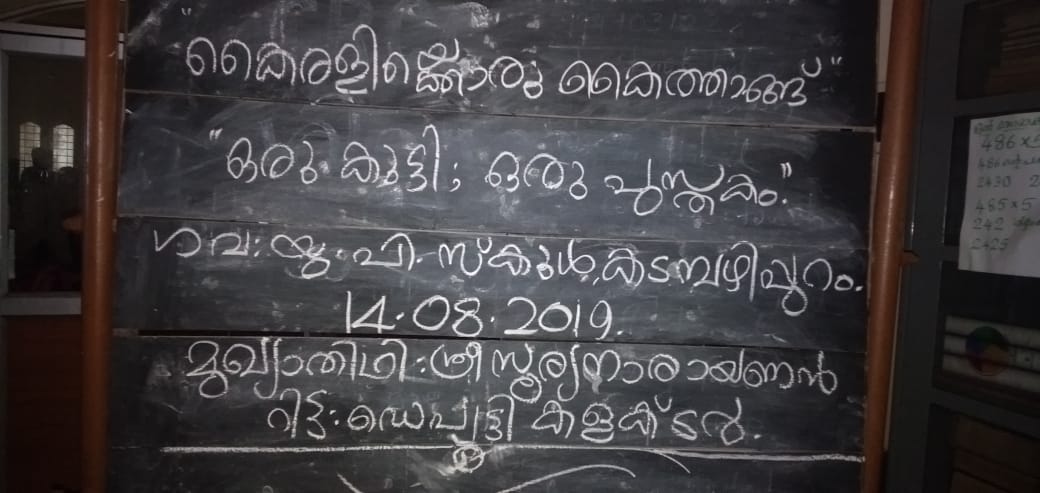 "കൈരളിക്കൊരു കൈത്താങ്ങ്"
"ഒരു കുട്ടി; ഒരു പുസ്തകം."
ഗവ: യു. പി. സ്കൂൾ, കടമ്പഴിപ്പുറം.
14.08.2019.
മുഖ്യാതിഥി: ശ്രീ സൂര്യനാരായണൻ
റിട്ട: ഡെപ്യൂട്ടി കളക്ടർ.
486 x 5
2430
485 x 5
242
2425